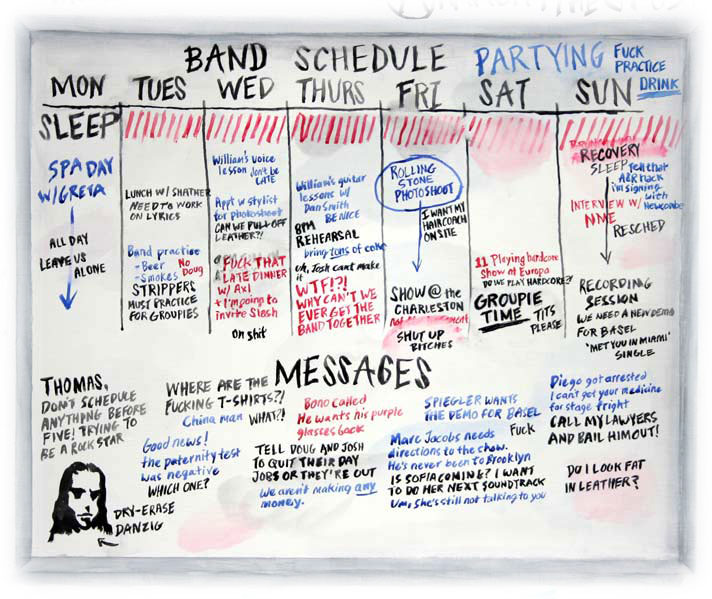 BAND SCHEDULE PARTYING FUCK
PRACTICE
DRINK
MON TUES WED THURS FRI SAT SUN
SLEEP
SPA DAY
W/GRETA
ALL DAY
LEAVE US
ALONE
LUNCH W/ SHATNER
NEED TO WORK
ON LYRICS
Band practice
-Beer
-Smokes
No
Doug
STRIPPERS
MUST PRACTICE
FOR GROUPIES
William's voice
lesson
don't be
LATE
Appt w/ stylist
for photoshoot
CAN WE PULL OFF
LEATHER?!
FUCK THAT
LATE DINNER
W/ Axl
+ I'm going to
invite Slash
Oh shit
William's guitar
lessons w/
Dan Smith
BE NICE
8PM
REHEARSAL
bring tons of coke
uh, Josh can't make
it
WTF!?!
WHY CAN'T WE
EVER GET THE
BAND TOGETHER
ROLLING
STONE
PHOTOSHOOT
I WANT MY
HAIR COACH
ON SITE
SHOW @ the
CHARLESTON
SHUT UP
BITCHES
11 Playing hardcore
Show at Europa
DO WE PLAY HARDCORE?!
GROUPIE
TIME
TITS
PLEASE
RECOVERY
SLEEP
Tell that
A&R hack
i'm signing
with
Newcombe
INTERVIEW W/
NME
RESCHED
RECORDING
SESSION
WE NEED A NEW DEMO
FOR BASEL
'MET YOU IN MIAMI'
SINGLE
MESSAGES
THOMAS,
DON'T SCHEDULE
ANYTHING BEFORE
FIVE! TRYING TO
BE A ROCK STAR
DRY-ERASE
DANZIG
WHERE ARE THE
FUCKING T-SHIRTS?!
China man
WHAT?!
Good news!
the paternity test
was negative
WHICH ONE?
Bono called
He wants his purple
glasses back
TELL DOUG AND JOSH
TO QUIT THEIR DAY
JOBS OR THEY'RE OUT
We aren't making any
money.
SPIEGLER WANTS
THE DEMO FOR BASEL
FUCK
Marc Jacobs needs
directions to the show.
He's never been to Brooklyn
IS SOFIA COMING? I WANT
TO DO HER NEXT SOUNDTRACK
Um, she's still not talking to you
Diego got arrested
I can't get your medicine
for stage fright
CALL MY LAWYERS
AND BAIL HIM OUT!
DO I LOOK FAT
IN LEATHER?